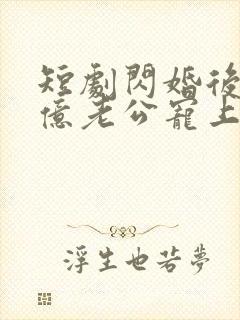 短劇閃婚後
億老公寵上
浮生也若夢